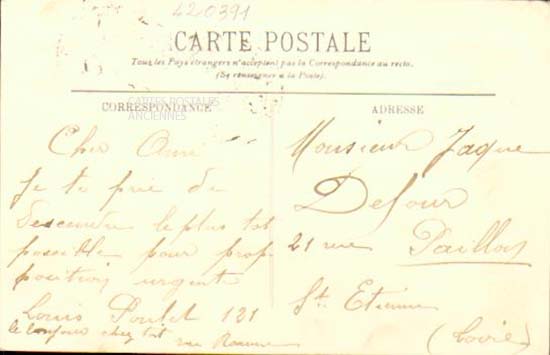 420391
CARTE POSTALE
Tous les Pays étrangers n'acceptent pas la Correspondance au recto.
(Se renseigner à la Poste).
CORRESPONDANCE
CARTES POSTALES
ANCIENNES
ADRESSE
Cher Ami
Je te prie de
descendre le plus tot
possible pour prop
position urgent
Louis Poulet 121
chez toi rue
Monsieur Jaque
Defour
21 rue Paillon
St. Etienne
(Loire)